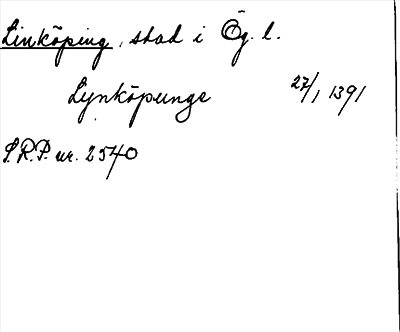 Linköping, stad i Ög. l.
Lynköpunge 27/1 1391
S.R.P. nr. 2540